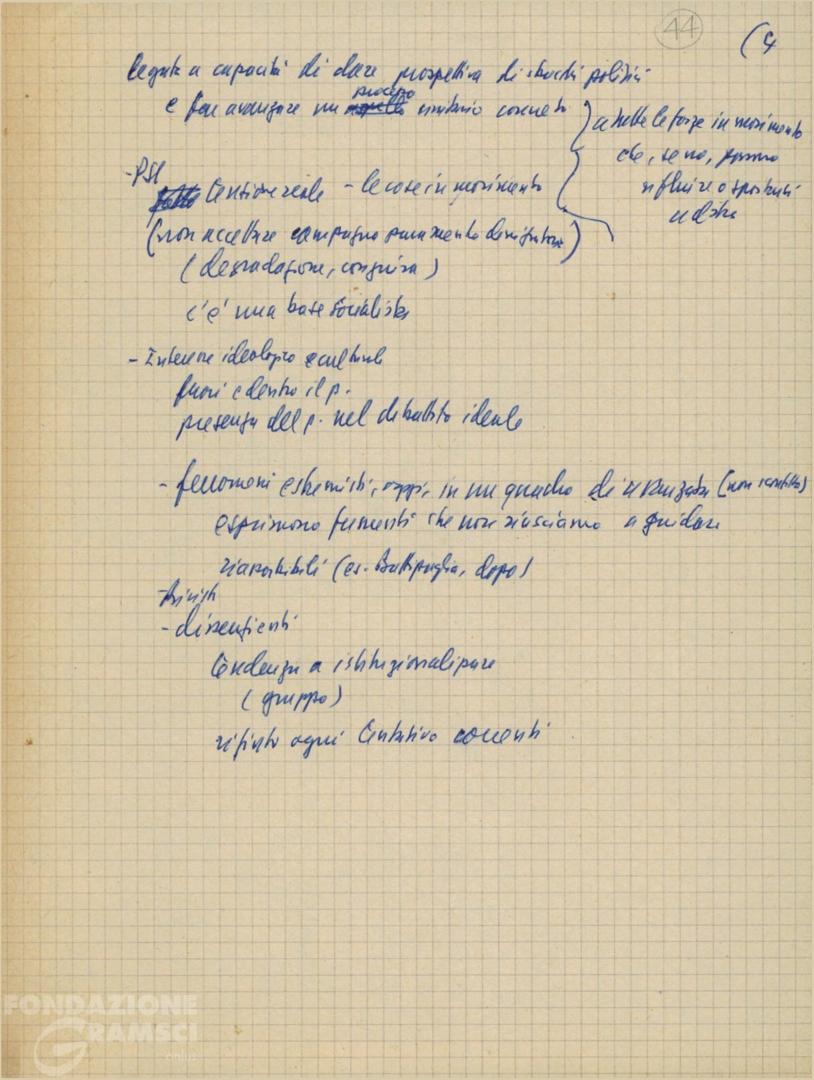 44
(4
legata a capacità di dare prospettiva di sbocchi politici
e far avanzare un processo unitario concreto
a tutte le forze in movimento
che, se no, possono
rifluire o spostarsi
a destra
- PSI
tensione reale - le cose in movimento
(non accettare campagna puramente denigratoria)
(degradazione, congiura)
c'è una base socialista
- Intervento ideologico e culturale
fuori e dentro il p.
presenza del p. nel dibattito ideale
- fenomeni estremisti, in un quadro di avanzata (non sconfitta)
esprimono fermenti che non riusciamo a guidare
riassorbibili (es. Battipaglia, dopo)
- dissenzienti
tendenza a istituzionalizzare
(gruppo)
rifiuto ogni tentativo correnti
FONDAZIONE
GRAMSCI